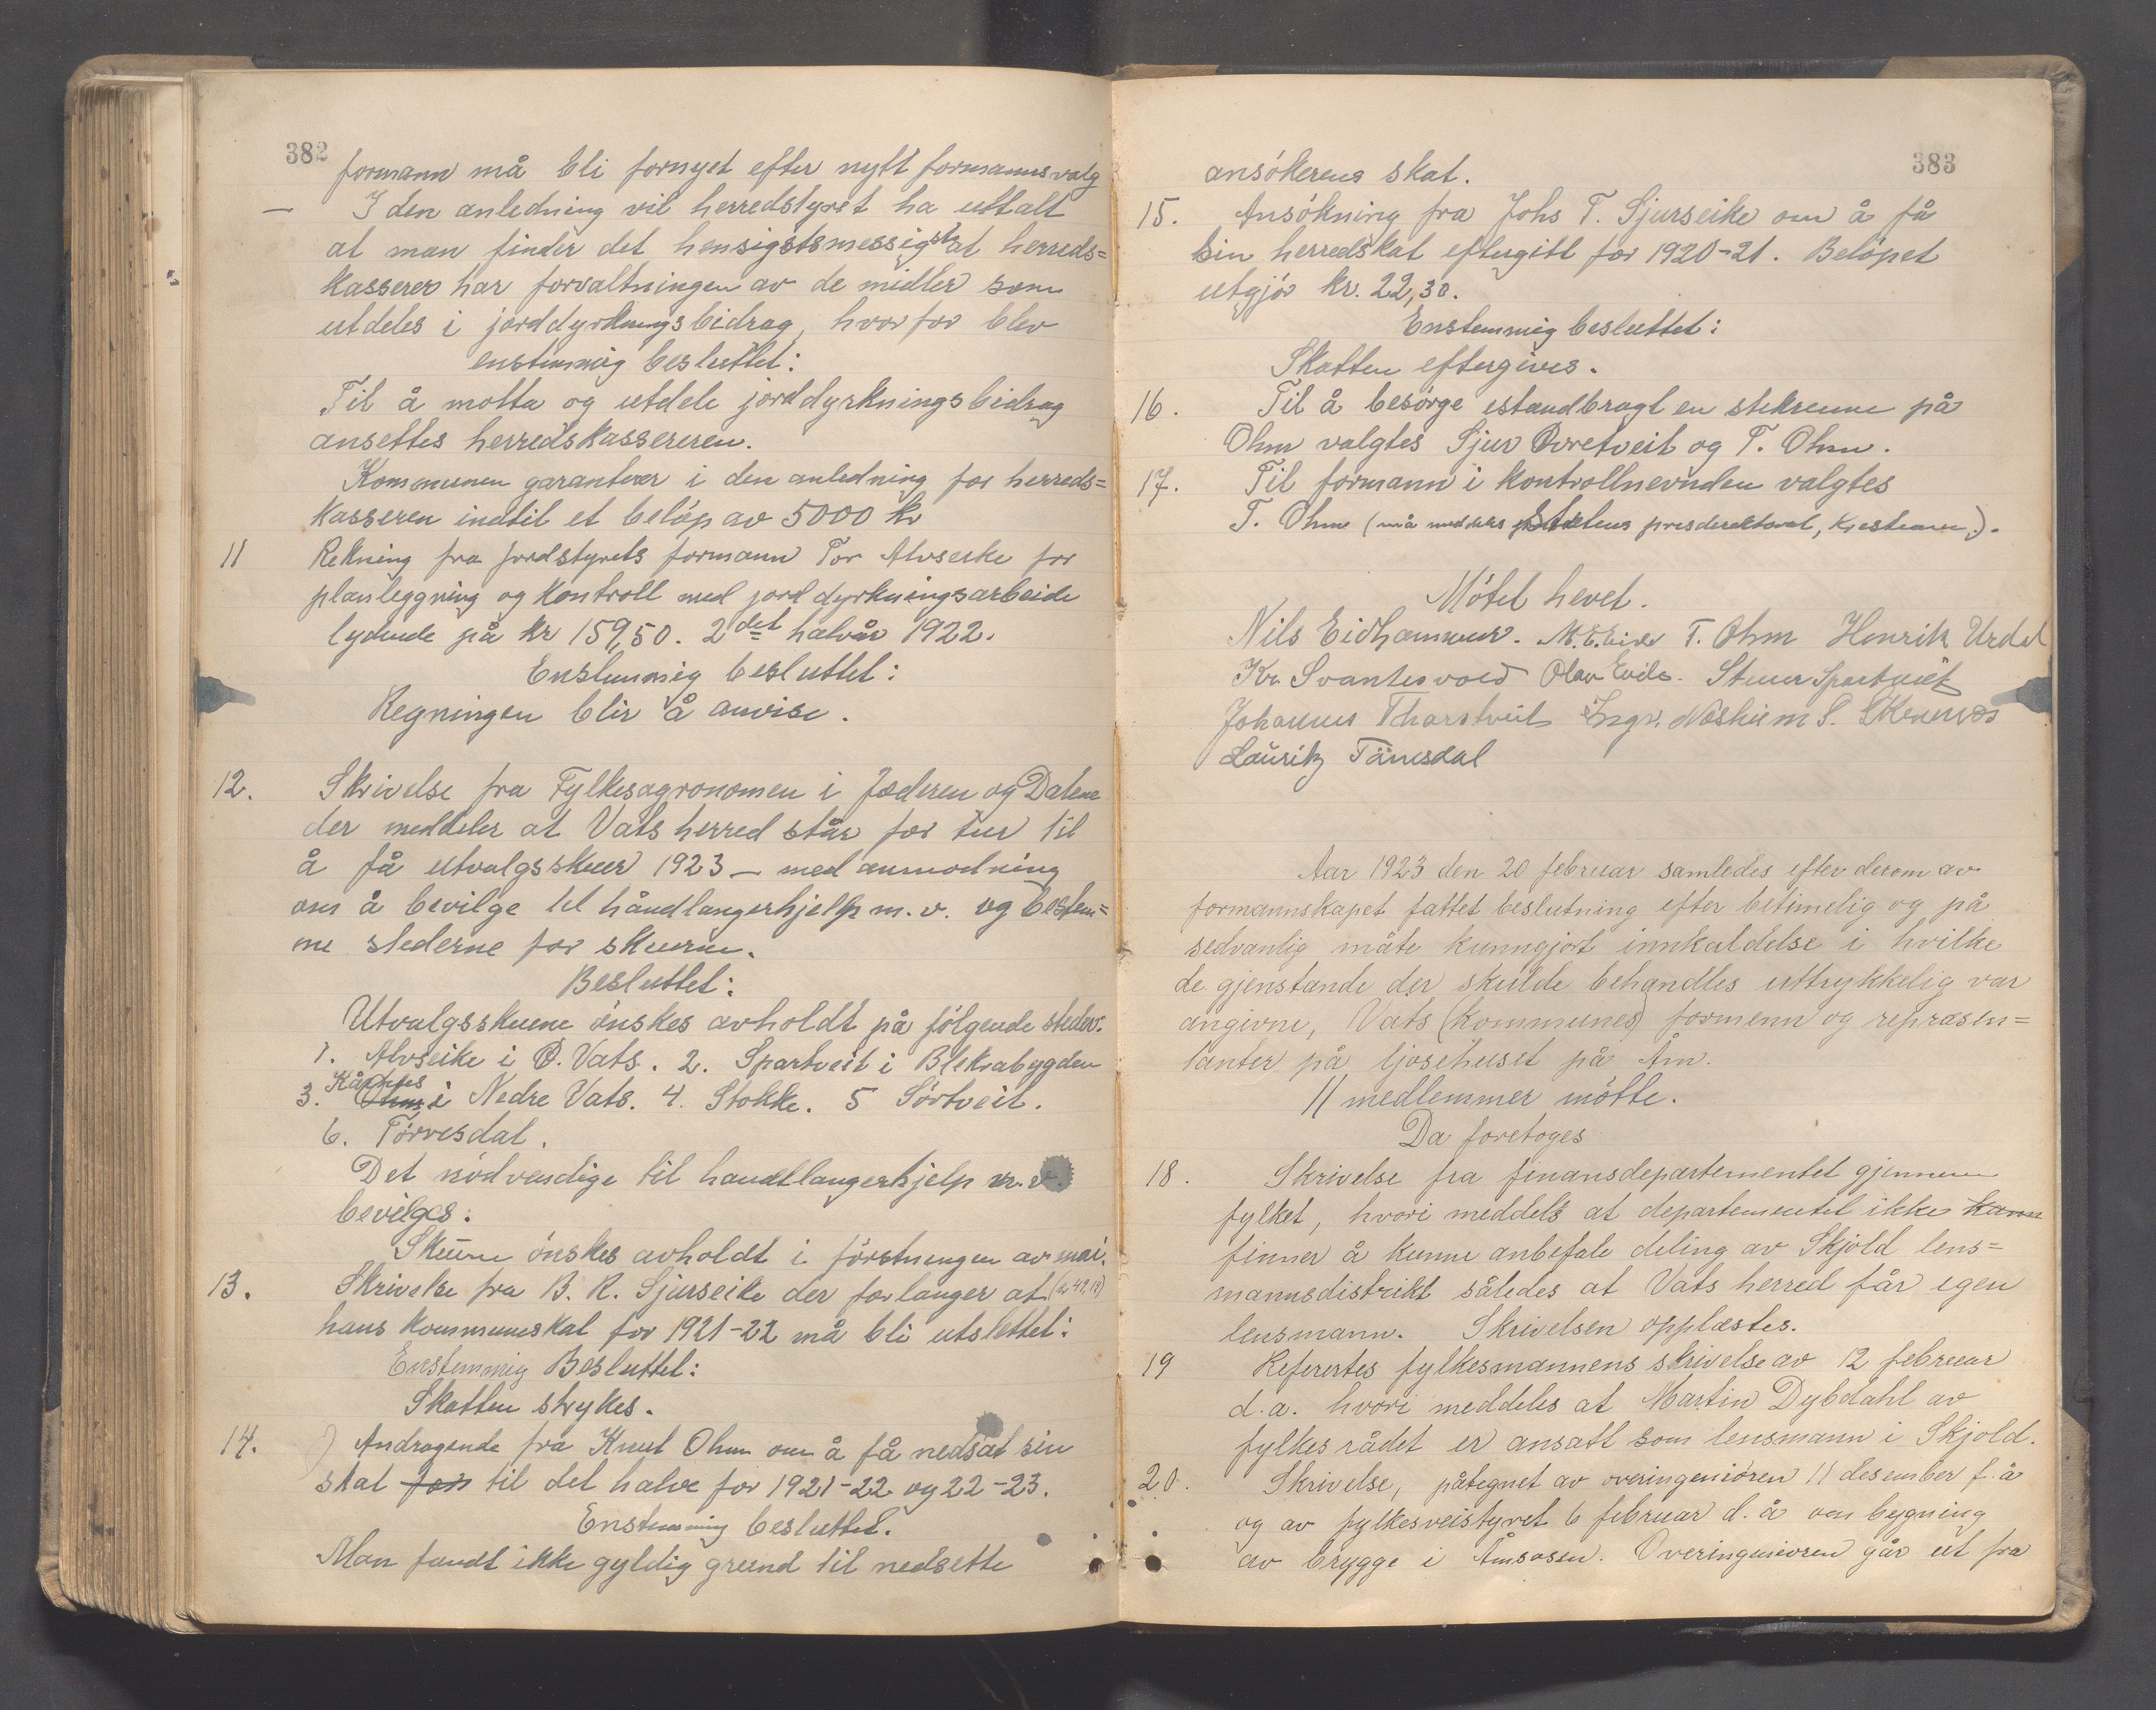 382
formann må bli fornyet efter nytt formannsvalg
— I den anledning vil herredstyret ha uttalt
at man finder det hensigtsmessigst at herreds=
kasserer har forvaltningen av de midler som
utdeles i jorddyrkningsbidrag, hvorfor blev
enstemmig besluttet:
Til å motta og utdele jorddyrkningsbidrag
ansettes herredskassereren.
Kommunen garanterer i den anledning for herreds=
kasseren indtil et beløp av 5000 kr
11 Rekning fra jordstyrets formann Tor Alvseike for
planleggning og kontroll med jorddyrkningsarbeide
lydende på kr 159,50. 2det halvår 1922.
Enstemmig besluttet:
Regningen blir å anvise.
12. Skrivelse fra Fylkesagronomen i Jæderen og Dalene
der meddeler at Vats herred står for tur til
å få utvalgsskuer 1923 — med anmodning
om å bevilge til håndlangerhjelp m.v. og bestem=
me stederne for skuerne.
Besluttet:
Utvalgsskuene ønskes avholdt på følgende steder:
1. Alvseike i Ø. Vats. 2. Spartveit i Blekrabygden
3. Kårhus Ohm i Nedre Vats. 4. Stokke. 5 Sørtveit.
6. Tørresdal.
Det nødvendige til haandlangerhjelp m.v.
bevilges.
Skuene ønskes avholdt i førstningen av mai.
13. Skrivelse fra B. R. Sjurseike der forlanger at (kr 49,18)
hans kommuneskat for 1921-22 må bli utslettet:
Enstemmig Besluttet:
Skatten strykes.
14. Andragende fra Knut Ohm om å få nedsat sin
skat for til det halve for 1921-22 og 22-23.
Enstemmig besluttet.
Man fandt ikke gyldig grund til nedsette
383
ansøkerens skat.
15. Ansøkning fra Johs T. Sjurseike om å få
sin herredskat eftergitt for 1920-21. Beløpet
utgjør kr. 22,30.
Enstemmig besluttet:
Skatten eftergives.
16. Til å besørge istandbragt en stikrenne på
Ohm valgtes Sjur Øvretveit og T. Ohm.
17. Til formann i kontrollnevnden valgtes
T. Ohm (må meddeles Statens prisdirektorat, Kristiania).
Møtet hevet.
Nils Eidhammer. M. E. Eide T. Ohm Henrik Urdal
Kr. Svantesvold Olav Eide. Sturr Spartveit
Johannes Tharstveit Ingv. Nesheim S.
Lauritz Tørresdal
Aar 1923 den 20 februar samledes efter derom av
formannskapet fattet beslutning efter betimelig og på
sedvanlig måte kunngjort innkaldelse i hvilke
de gjenstande der skulde behandles uttrykkelig var
angivne, Vats (kommunes) formenn og repræsen=
tanter på ljosehuset på Åm.
11 medlemmer møtte.
Da foretoges
18. Skrivelse fra finansdepartementet gjennem
fylket, hvori meddels at departementet ikke kann
finner å kunne anbefale deling av Skjold lens=
mannsdistrikt således at Vats herred får egen
lensmann. Skrivelsen opplæstes.
19 Referertes fylkesmannens skrivelse av 12 februar
d.a. hvori meddeles at Martin Dybdahl av
fylkesrådet er ansatt som lensmann i Skjold.
20. Skrivelse, påtegnet av overingeniøren 11 desember f.å
og av fylkesveistyret 6 februar d.å om bygning
av brygge i Åmsosen. Overingeniøren går ut fra